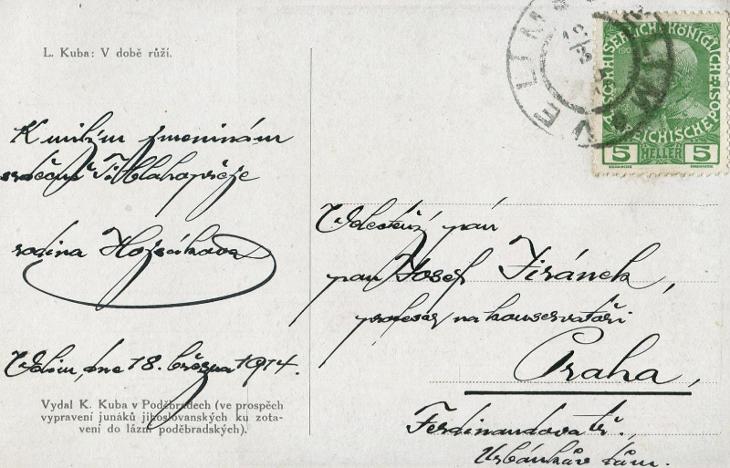 L. Kuba: V době růží.
K milým jmeninám
srdečně Ti blahopřeje
rodina
Velim, dne 18. března 1914.
Vydal K. Kuba v Poděbradech (ve prospěch
vypravení junáků jihoslovanských ku zota-
vení do lázní poděbradských).
VELIM
KAISERLICHE KÖNIGLICHE
ÖSTERREICHISCHE POST
5 HELLER 5
Velectěný pán
pan Josef Jiránek,
profesor na konservatoři
Praha,
Ferdinandova tř.
Urbánkův dům.